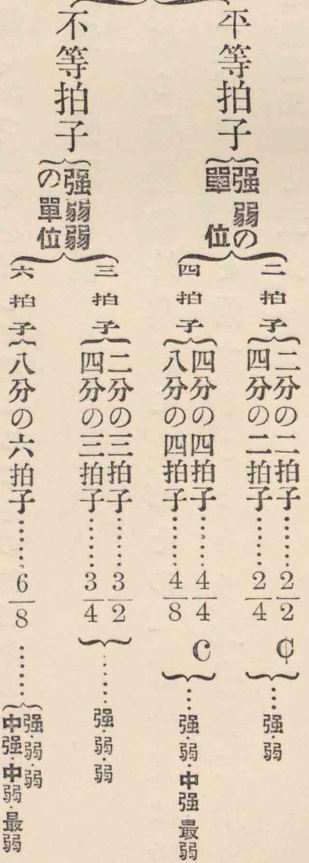 平等拍子
強弱の
單位
二拍子
二分の二拍子……2/2 ¢
四分の二拍子……2/4
…強弱
四拍子
四分の四拍子……4/4 C
八分の四拍子……4/8
…強弱中强最弱
不等拍子
强弱弱
の單位
三拍子
二分の三拍子……3/2
四分の三拍子……3/4
……强弱弱
六拍子
八分の六拍子……6/8……
强弱弱
中强中弱最弱